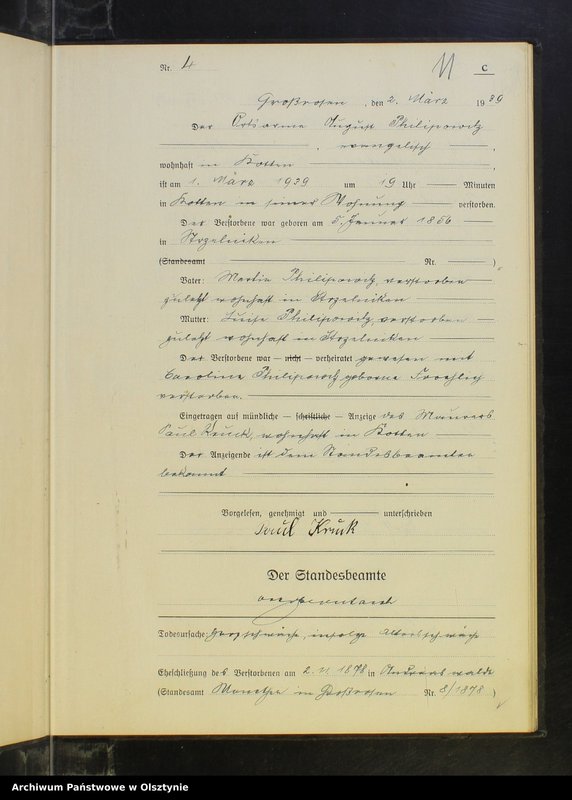 Nr. 4
11
C
Großrosen, den 2. März 1939
Der Ortsarme August Philipowitz
, evangelisch,
wohnhaft in Kotten
ist am 1. März 1939 um 19 Uhr Minuten
in Kotten in seiner Wohnung verstorben.
Der Verstorbene war geboren am 5. Januar 1856
in Strzelniken
(Standesamt Nr. )
Vater: Martin Philipowitz, verstorben
zuletzt wohnhaft in Strzelniken
Mutter: Luise Philipowitz, verstorben
zuletzt wohnhaft in Strzelniken
Der Verstorbene war — nicht — verheiratet gewesen mit
Caroline Philipowitz geborene Froehlich
verstorben.
Eingetragen auf mündliche — schriftliche — Anzeige des Maurers
Paul Kruck, wohnhaft in Kotten
Der Anzeigende ist dem Standesbeamten
bekannt
Vorgelesen, genehmigt und unterschrieben
Paul Kruk
Der Standesbeamte
Todesursache: Herzschwäche, infolge Altersschwäche
Eheschließung des Verstorbenen am 2.11.1878 in
(Standesamt in Großrosen Nr. 8/1878)
Archiwum Państwowe w Olsztynie